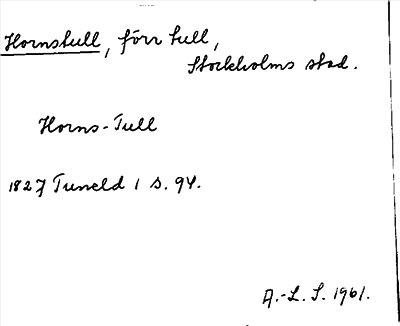 Hornstull, förr tull,
Stockholms stad.
Horns-Tull
1827 Tuneld 1 s. 94.
A.-L. S. 1961.